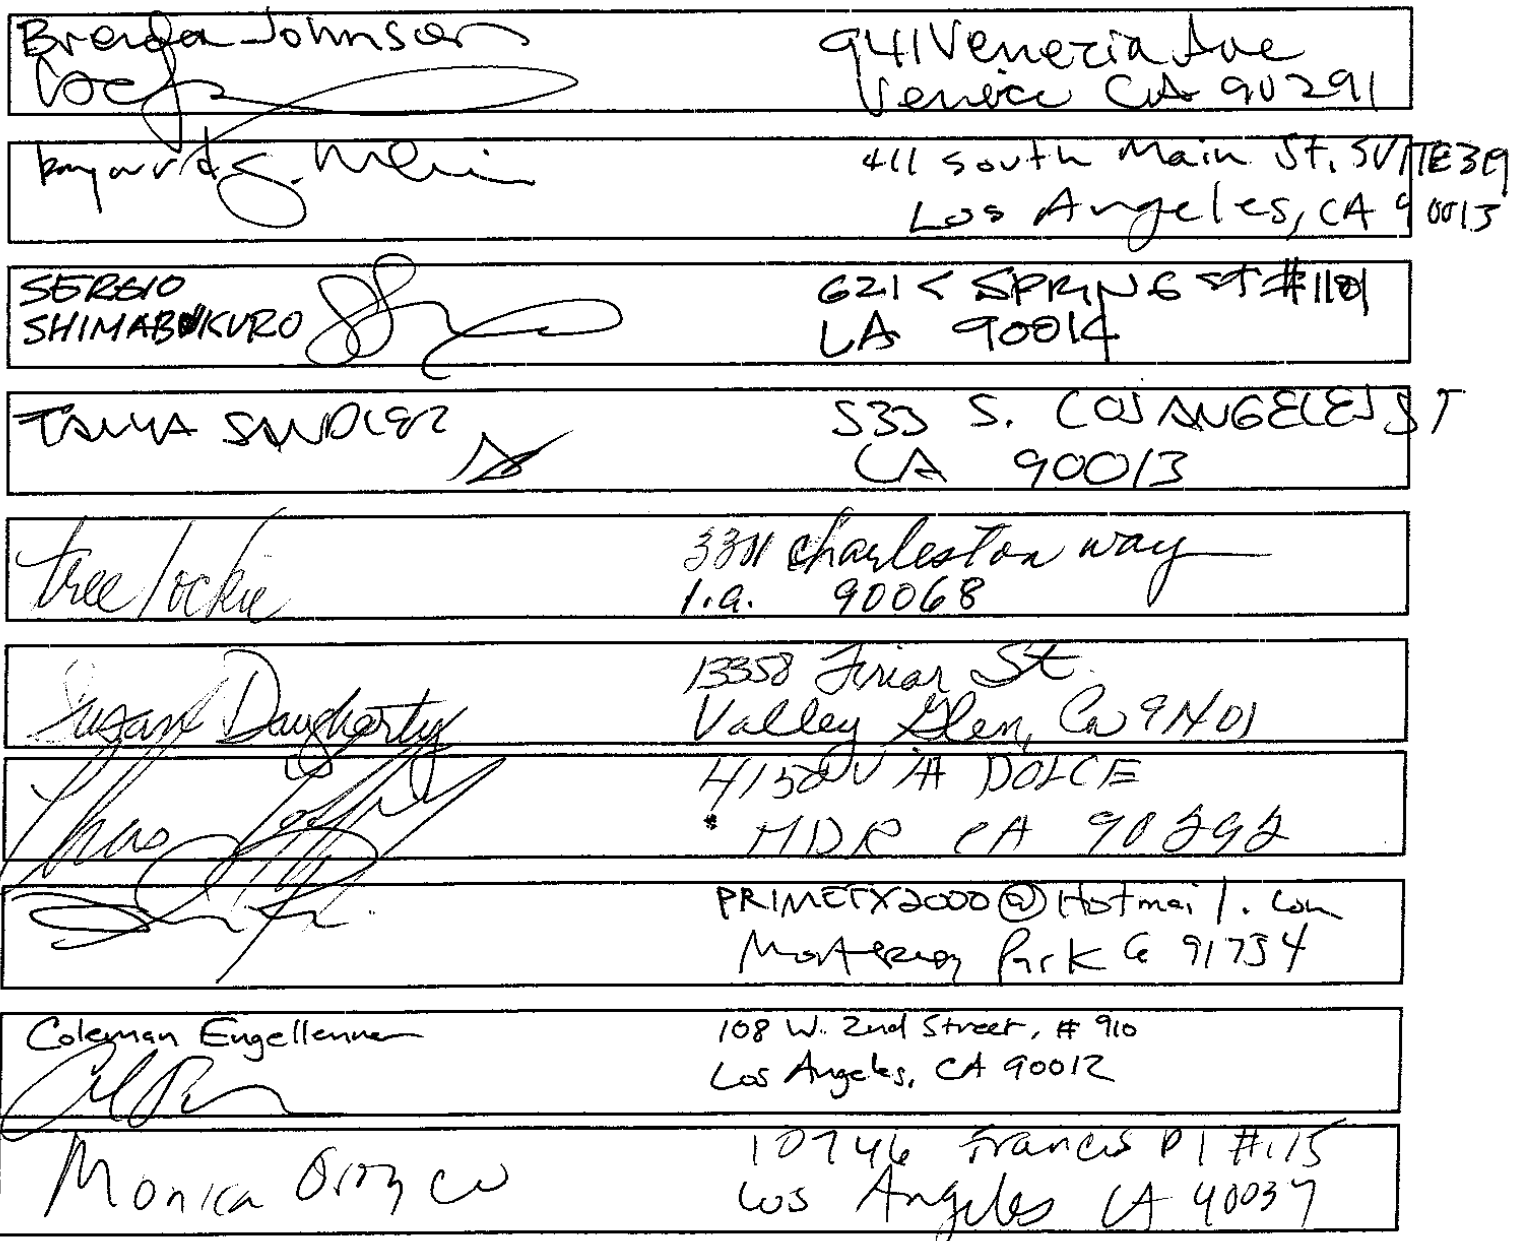 Brenda Johnson
941 Venezia Ave
Venice CA 90291
411 South Main St. SUITE 319
Los Angeles, CA 90013
SERGIO
SHIMABUKURO
621 S SPRING ST #1101
LA 90014
TANYA SANDLER
533 S. LOS ANGELES ST
LA 90013
tree lockie
3311 Charleston way
l.a. 90068
Susan Daugherty
13358 Friar St.
Valley Glen, Ca 91401
4150 VIA DOLCE
MDR CA 90292
PRIMETX2000@Hotmail.com
Monterey Park Ca 91754
Coleman Engellenner
108 W. 2nd Street, # 910
Los Angeles, CA 90012
Monica Orozco
10746 Francis Pl #115
Los Angeles CA 90034